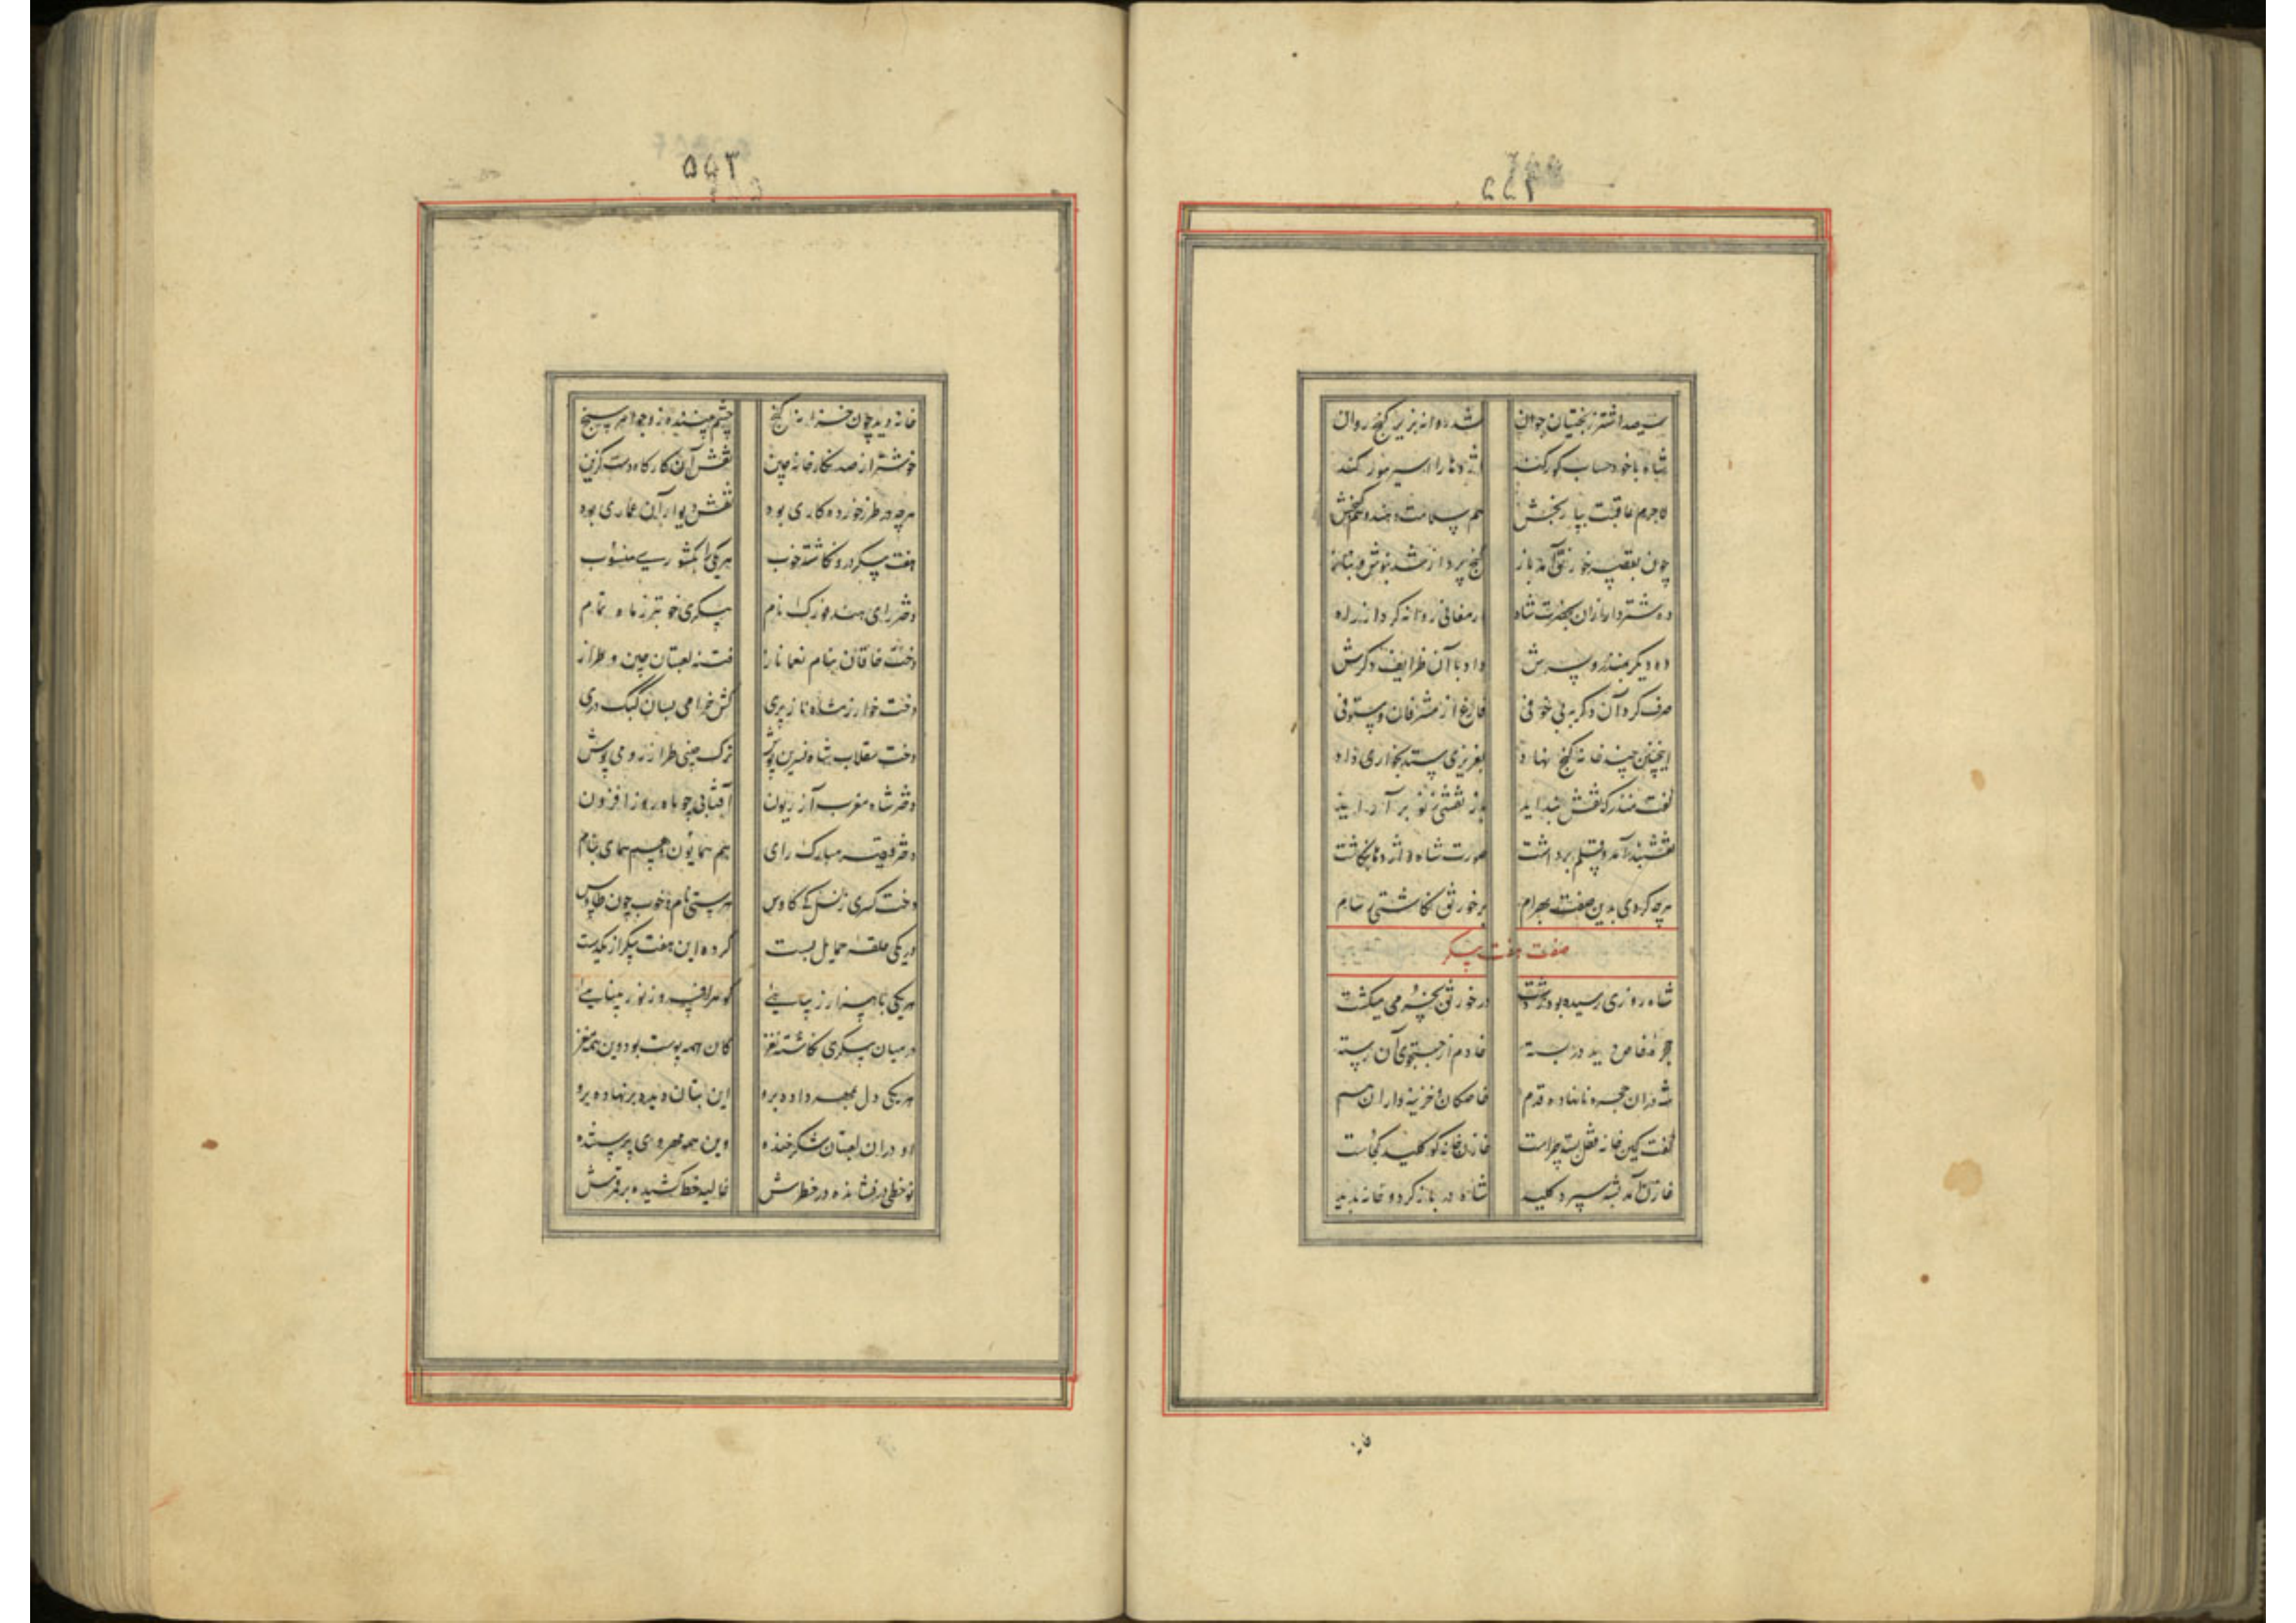 ۵۵۲
سیصد اشتر ز بختیان جوان شد روانه بزیر گنج روان
شاه با خود حساب گور کند اژدها را اسیر گور کند
لاجرم عاقبت بپا رنجش هم سلامت دهند و هم گنجش
چون بقصر خورنق آمد باز گنج پرداز شد بنوش و بناز
ده شتردار ازان بحضرت شاه ارمغانی روانه کرد از راه
ده دیگر بمنذر و پسرش داد با آن ظرایف دگرش
صرف کرد آن دگر به بی خوفی فارغ از مشرفان و مستوفی
اینچنین چند خانه گنج نهاد بعزیزی ستد بخواری داد
گفت منذر که نقشبند آید باز نقشی ز نو بر آراید
نقشبند آمد و قلم برداشت صورت شاه و اژدها بنگاشت
هرچه کردی بدین صفت بهرام بر خورنق نگاشتی
صفت هفت پیکر
شاه روزی رسیده بود ز دشت در خورنق بخرمی میگشت
حجرهٔ خاص دید در بسته خادم از جستجوی آن رسته
شه دران حجره نانهاده قدم خاصگان و خزینه داران هم
گفت کین خانه قفل بسته چراست خازن خانه کو کلید کجاست
خازن آمد بشه سپرد کلید شاه در باز کرد و خانه بدید
۵۵۳
خانه دید چون خزانه گنج چشم بیننده زو جواهر سنج
خوشتر از صد نگارخانه چین نقش آن کارگاه دست گزین
هرچه در طرز خورده کاری بود نقش دیوار آن عماری بود
هفت پیکر درو نگاشته خوب هر یکی را بکشوری منسوب
دختر رای هند فورک نام پیکری خوبتر ز ماه تمام
دخت خاقان بنام یغما ناز فتنه لعبتان چین و طراز
دخت خوارزمشاه ناز پری کش خرامی بسان کبک دری
دخت سقلاب شاه نسرین نوش ترک چینی طراز رومی پوش
دختر شاه مغرب آزریون آفتابی چو ماه روز افزون
دختر قیصر مبارک رای هم همایون و هم همای بنام
دخت کسری ز نسل کیکاوس درستی نام و خوب چون طاوس
در یکی حلقه حمایل بست کرده این هفت پیکر از یکدست
هر یکی با هزار زیبائی گوهر افروز نور بینائی
در میان پیکری نگاشته نغز کان همه پوست بود وین همه مغز
هر یکی دل بمهر داده برو این بتان دیده برنهاده برو
او دران لعبتان شکر خنده وین همه مهر روی پرستنده
نو خطی در نشانده در خطرش غالیه خط کشیده بر قمرش